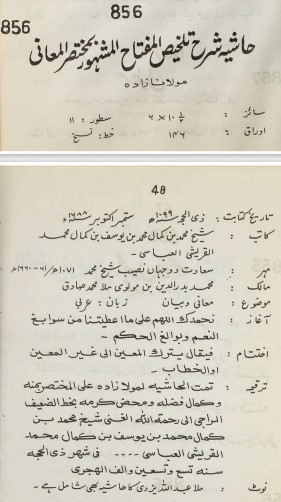 856
856
حاشیه شرح تلخیص المفتاح المشہور بمختصر المعانی
مولانا زاده
سائز : ۱۰½ × ۶ سطور : ۱۱
اوراق : ۱۴۶ خط : نسخ
48
تاریخ کتابت : ذی الحجہ ۱۰۹۹ھ ستمبر اکتوبر ۱۶۸۸ء
کاتب : شیخ محمد بن کمال محمد بن یوسف بن کمال محمد
القریشی العباسی ۔
مہر : سعادت دو جہاں نصیب شیخ محمد ۱۰۷۱ھ/۶۱-۱۶۶۰ء
مالک : محمد بدر الدین بن مولوی ملا محمد صادق
موضوع : معانی وبیان زبان : عربی
آغاز : نحمدك اللهم على ما اعطيتنا من سوابغ
النعم وبوالغ الحكم ۔
اختتام : فيقال بترك المعين الى غير المعين
اوالخطاب ۔
ترقیمہ : تمت الحاشيه لمولازاده على المختصر بمنه
وكمال فضله ومحض كرمه بخط الضيف
الراجى الى رحمة الله الغنى شيخ محمد بن
كمال محمد بن يوسف بن كمال محمد
القريشى العباسى ---- فى شهر ذى الحجه
سنه تسع وتسعين والف الهجرى
نوٹ : ملا عبداللہ یزدی کا حاشیہ بھی شامل ہے ۔